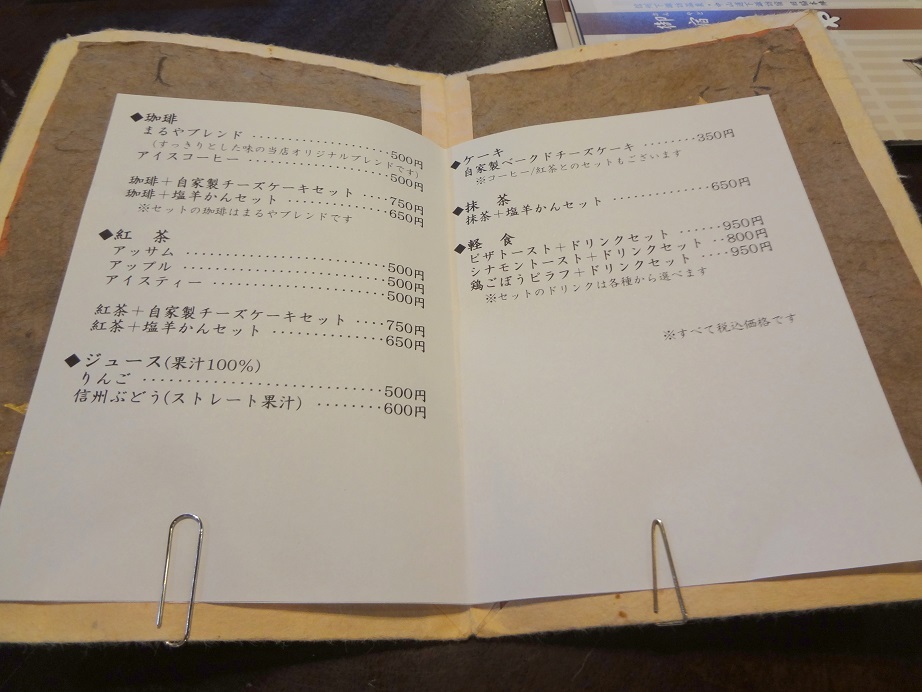 ◆珈琲
まるやブレンド ‥‥‥‥‥‥‥‥500円
(すっきりとした味の当店オリジナルブレンドです)
アイスコーヒー ‥‥‥‥‥‥‥‥500円
珈琲＋自家製チーズケーキセット ‥‥‥750円
珈琲＋塩羊かんセット ‥‥‥‥‥‥650円
※セットの珈琲はまるやブレンドです
◆紅 茶
アッサム ‥‥‥‥‥‥‥‥‥‥500円
アップル ‥‥‥‥‥‥‥‥‥‥500円
アイスティー ‥‥‥‥‥‥‥‥‥500円
紅茶＋自家製チーズケーキセット ‥‥750円
紅茶＋塩羊かんセット ‥‥‥‥‥‥650円
◆ジュース(果汁100%)
りんご ‥‥‥‥‥‥‥‥‥‥‥‥500円
信州ぶどう(ストレート果汁) ‥‥‥‥600円
◆ケーキ
自家製ベークドチーズケーキ ‥‥‥‥350円
※コーヒー/紅茶とのセットもございます
◆抹 茶
抹茶＋塩羊かんセット ‥‥‥‥‥‥650円
◆軽 食
ピザトースト＋ドリンクセット ‥‥‥950円
シナモントースト＋ドリンクセット ‥800円
鶏ごぼうピラフ＋ドリンクセット ‥‥950円
※セットのドリンクは各種から選べます
※すべて税込価格です
御宿